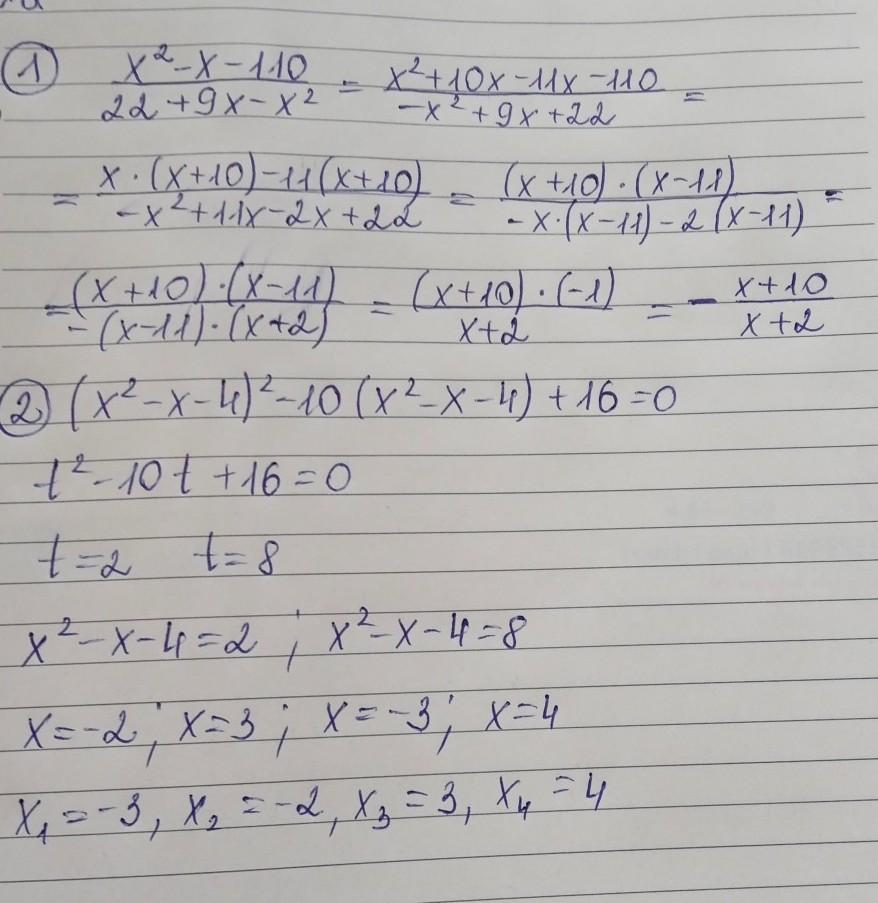 ① x²-x-110 / 22+9x-x² = x²+10x-11x-110 / -x²+9x+22 =
= x·(x+10)-11(x+10) / -x²+11x-2x+22 = (x+10)·(x-11) / -x·(x-11)-2(x-11) =
= (x+10)·(x-11) / -(x-11)·(x+2) = (x+10)·(-1) / x+2 = - x+10 / x+2
② (x²-x-4)²-10(x²-x-4)+16=0
t²-10t+16=0
t=2 t=8
x²-x-4=2 ; x²-x-4=8
x=-2; x=3; x=-3; x=4
x₁=-3, x₂=-2, x₃=3, x₄=4